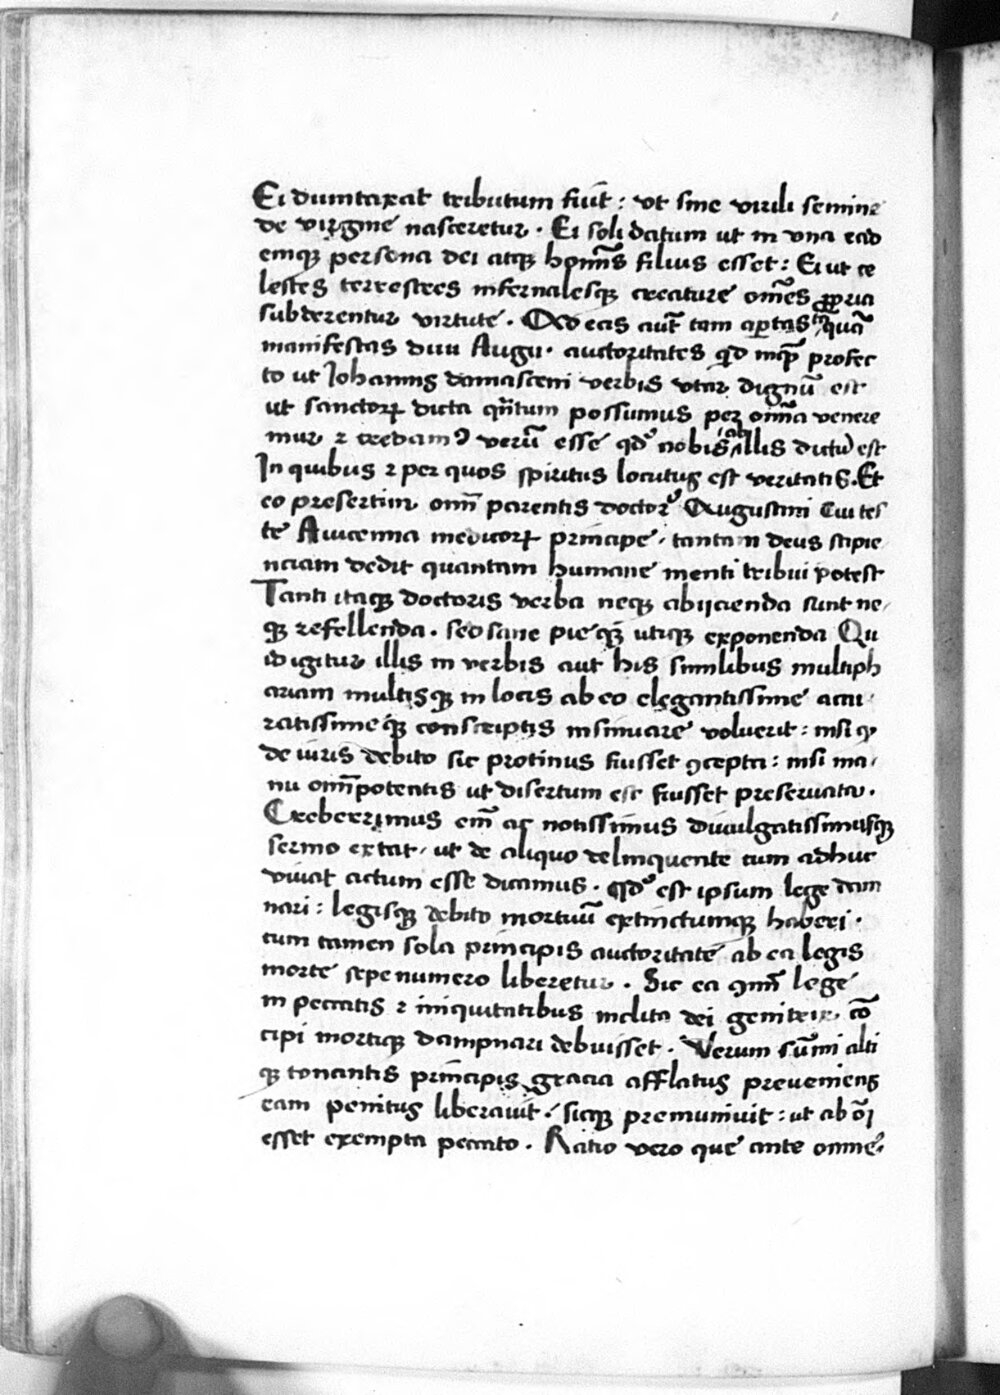 Ei dumtaxat tributum fuit : ut sine virili semine
de virgine nasceretur . Ei soli datum ut in una ead
emqꝫ persona dei atqꝫ hoı̅s filius esset : Ei ut ce
lestes terrestres infernalesqꝫ creature om̅es ꝓpria
subderentur virtute . Qd̅ eas aut̅ tam aptas ta quā
manifestas divi Augu . auctoritates qd̅ profec
to ut Johannis damasceni verbis utar dignū est
ut sanctoꝝ dicta qn̅tum possumus per om̅ia venere
mur ⁊ credamꝰ verū esse qd̅ nobis ab illis dictū est
In quibus ⁊ per quos spiritus locutus est veritatis . Et
eo presertim om̅ parentis doctor Augustini Cui tes
te Avicenna medicoꝝ principe . tantam deus sapie
nciam dedit quantam humane menti tribui potest
Tanti itaqꝫ doctoris verba neqꝫ abijcienda sunt ne
qꝫ refellenda . sed sane pie qꝫ utiqꝫ exponenda Qu
id igitur illis in verbis aut his similibus multiph
ariam multisqꝫ in locis ab eo elegantissime accu
ratissime qꝫ conscriptis insinuare voluerit : nisi qꝫ
de iuris debito sic protinus fuisset ꝯcepta : nisi ma
nu om̅potentis ut disertum est fuisset preservata .
Creberrimus em̅ ac notissimus divulgatissimusqꝫ
sermo extat , ut de aliquo delinquente cum adhuc
vivat actum esse dicamus . qd̅ est ipsum lege dam
nari : legisqꝫ debito mortuū extinctumqꝫ haberi .
cum tamen sola principis auctoritate ab ea legis
morte sepe numero liberetur . Sic ea ꝯmn̅ lege
in peccatis ⁊ iniquitatibus inclita dei genitrix cō
cipi mortiqꝫ dampnari debuisset . Verum sūmi alti
qꝫ tonantis principis gracia afflatus preveniens
eam penitus liberavit . sicqꝫ premunivit : ut ab oı̅
esset exempta peccato . Ratio vero que ante omne